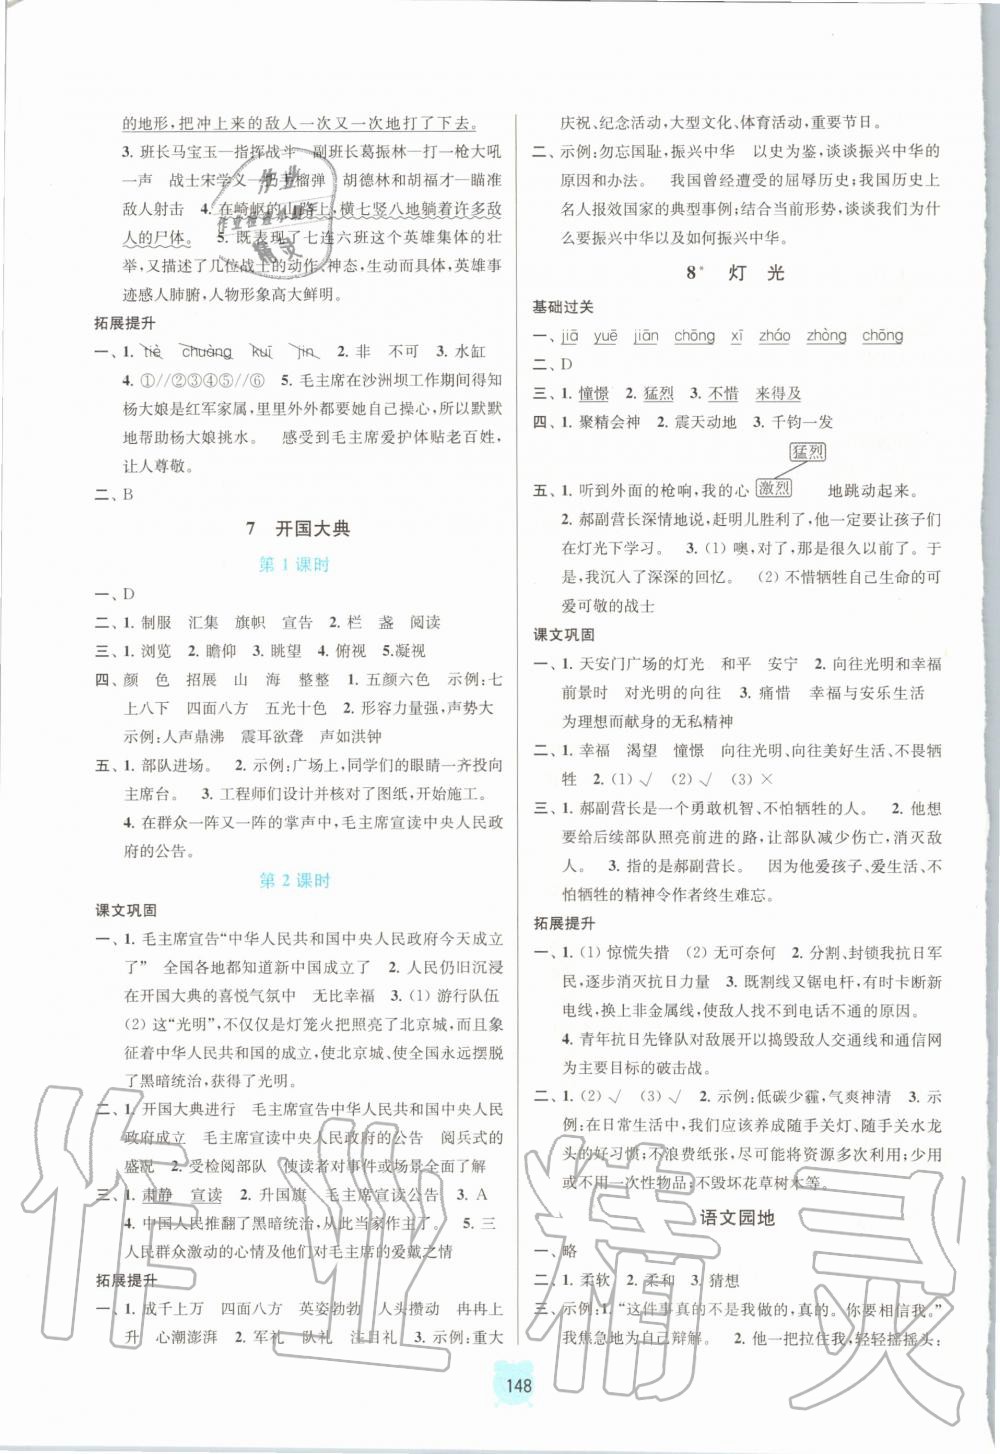 的地形,把冲上来的敌人一次又一次地打了下去。
3. 班长马宝玉—指挥战斗 副班长葛振林—打一枪大吼
一声 战士宋学义—扔手榴弹 胡德林和胡福才—瞄准
敌人射击 4. 在崎岖的山路上,横七竖八地躺着许多敌
人的尸体。 5. 既表现了七连六班这个英雄集体的壮
举,又描写了几位战士的动作、神态,生动而具体,英雄事
迹感人肺腑,人物形象高大鲜明。
拓展提升
一、1. tiè chuàng kuī jin 2. 非 不可 3. 水缸
4. ①//②③④⑤//⑥ 5. 毛主席在沙洲坝工作期间得知
杨大娘是红军家属,里里外外都要自己操心,所以默默
地帮助杨大娘挑水。 感受到毛主席爱护体贴老百姓,
让人尊敬。
二、B
7 开国大典
第 1 课时
一、D
二、1. 制服 汇集 旗帜 宣告 2. 栏 盏 阅读
三、1. 浏览 2. 瞻仰 3. 眺望 4. 俯视 5.凝视
四、颜 色 招展 山 海 整整 1. 五颜六色 示例:七
上八下 四面八方 五光十色 2. 形容力量强,声势大
示例:人声鼎沸 震耳欲聋 声如洪钟
五、1. 部队进场。 2. 示例:广场上,同学们的眼睛一齐投向
主席台。 3. 工程师们设计并核对了图纸,开始施工。
4. 在群众一阵又一阵的掌声中,毛主席宣读中央人民政
府的公告。
第 2 课时
课文巩固
一、1. 毛主席宣告“中华人民共和国中央人民政府今天成立
了” 全国各地都知道新中国成立了 2. 人民仍旧沉浸
在开国大典的喜悦气氛中 无比幸福 3. (1) 游行队伍
(2) 这“光明”,不仅仅是灯笼火把照亮了北京城,而且象
征着中华人民共和国的成立,使北京城、使全国永远摆脱
了黑暗统治,获得了光明。
二、1. 开国大典进行 毛主席宣告中华人民共和国中央人民
政府成立 毛主席宣读中央人民政府的公告 阅兵式的
盛况 2. 受检阅部队 使读者对事件或场景全面了解
三、1. 肃静 宣读 2. 升国旗 毛主席宣读公告 3. A
4. 中国人民推翻了黑暗统治,从此当家作主了。 5. 三
人民群众激动的心情及他们对毛主席的爱戴之情
拓展提升
一、1. 成千上万 四面八方 英姿勃勃 人头攒动 冉冉上
升 心潮澎湃 2. 军礼 队礼 注目礼 3. 示例:重大
庆祝、纪念活动,大型文化、体育活动,重要节日。
二、示例:勿忘国耻,振兴中华 以史为鉴,谈谈振兴中华的
原因和办法。 我国曾经遭受的屈辱历史;我国历史上
名人报效国家的典型事例;结合当前形势,谈谈我们为什
么要振兴中华以及如何振兴中华。
8* 灯 光
基础过关
一、jiā yuē jiān chōng xī zháo zhòng chōng
二、D
三、1. 憧憬 2. 猛烈 3. 不惜 来得及
四、1. 聚精会神 2. 震天动地 3. 千钧一发
猛烈
五、1. 听到外面的枪响,我的心 激烈 地跳动起来。
2. 郝副营长深情地说,赶明儿胜利了,他一定要让孩子们
在灯光下学习。 3. (1) 噢,对了,那是很久以前了。于
是,我沉入了深深的回忆。 (2) 不惜牺牲自己生命的可
爱可敬的战士
课文巩固
一、1. 天安门广场的灯光 和平 安宁 2. 向往光明和幸福
前景时 对光明的向往 3. 痛惜 幸福与安乐生活
为理想而献身的无私精神
二、1. 幸福 渴望 憧憬 向往光明、向往美好生活、不畏牺
牲 2. (1) √ (2) √ (3) ×
三、1. 郝副营长是一个勇敢机智、不怕牺牲的人。 2. 他想
要给后续部队照亮前进的路,让部队减少伤亡,消灭敌
人。 3. 指的是郝副营长。 因为他爱孩子、爱生活、不
怕牺牲的精神令作者终生难忘。
拓展提升
一、1. (1) 惊慌失措 (2) 无可奈何 2. 分割、封锁我抗日军
民,逐步消灭抗日力量 3. 既割线又锯电杆,有时卡断敌
伪电线,换上非金属线,使敌人找不到电话不通的原因。
4. 青年抗日先锋队对敌展开以捣毁敌人交通线和通信网
为主要目标的破击战。
二、1. (1) √ (2) √ (3) √ 2. 示例:低碳少霾,气爽神清 3. 示
例:在日常生活中,我们应该养成随手关灯、随手关水龙
头的好习惯;不浪费纸张,尽可能将资源多次利用;少用
或不用一次性物品;不毁坏花草树木等。
语文园地
一、略
二、1. 柔软 2. 柔和 3. 猜想
三、示例:1. “这件事真的不是我做的,真的。你要相信我。”
我焦急地为自己辩解。 2. 他一把拉住我,轻轻摇摇头:
148
作业精灵